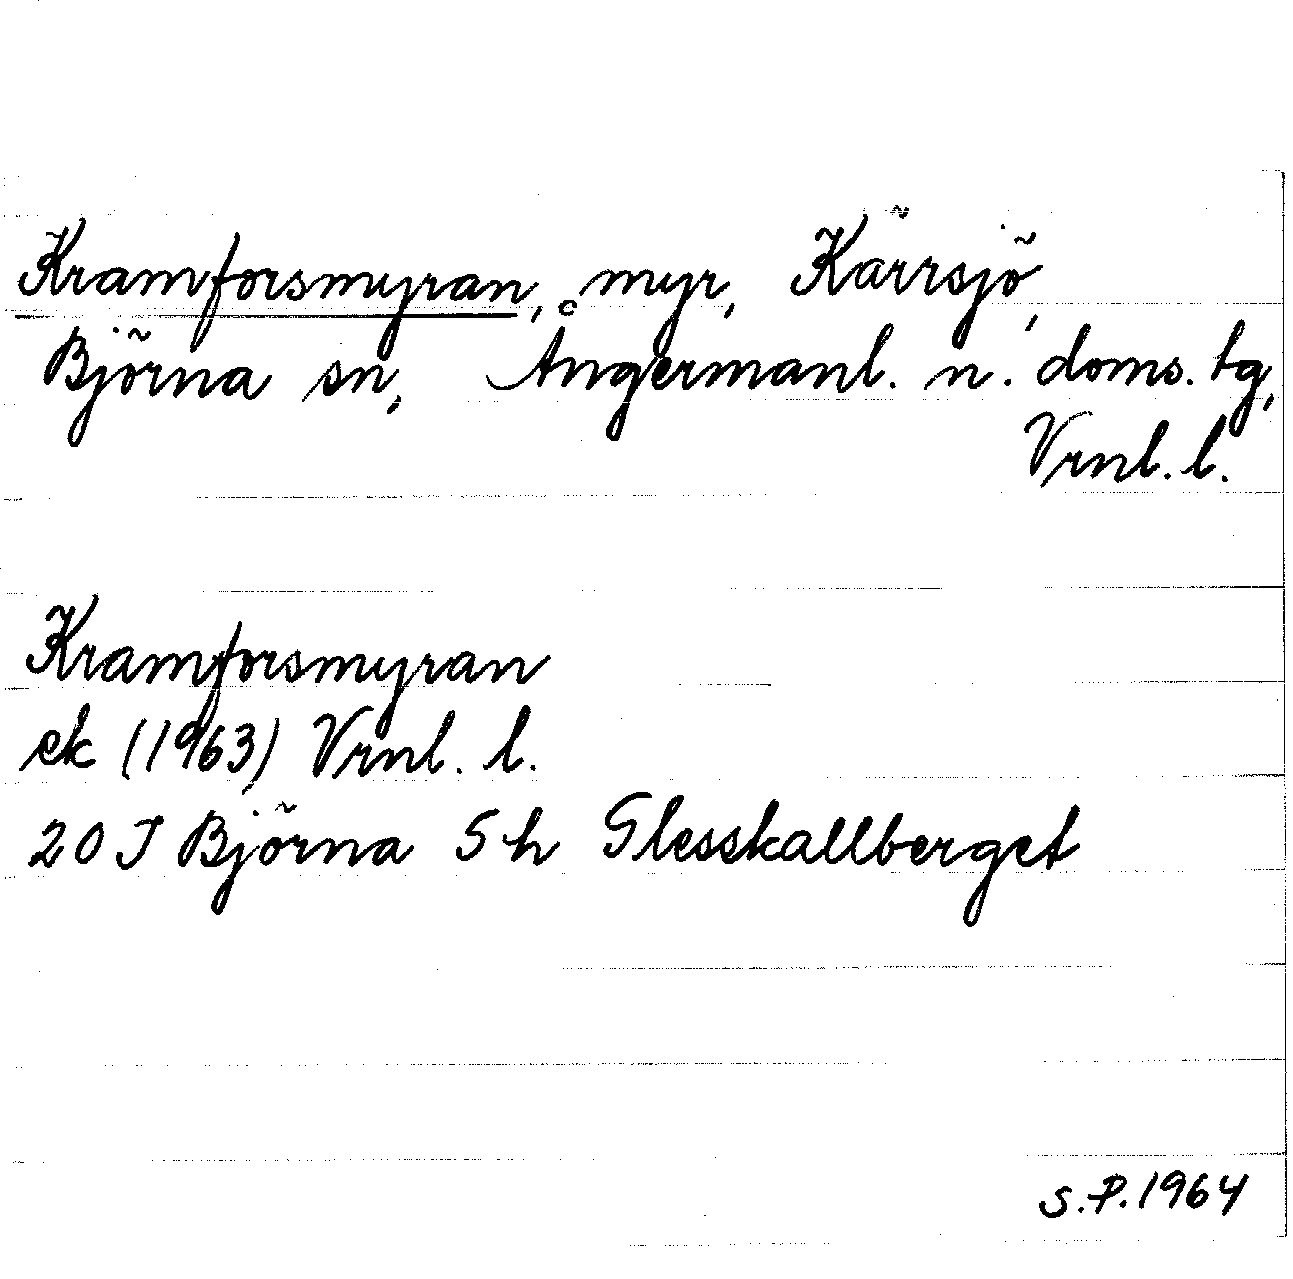 Kramforsmyran, myr, Kärrsjö,
Björna sn, Ångermanl. n. doms. tg,
Vrnl. l.
Kramforsmyran
ek (1963) Vrnl. l.
20 J Björna 5 h Glesskallberget
S.P. 1964